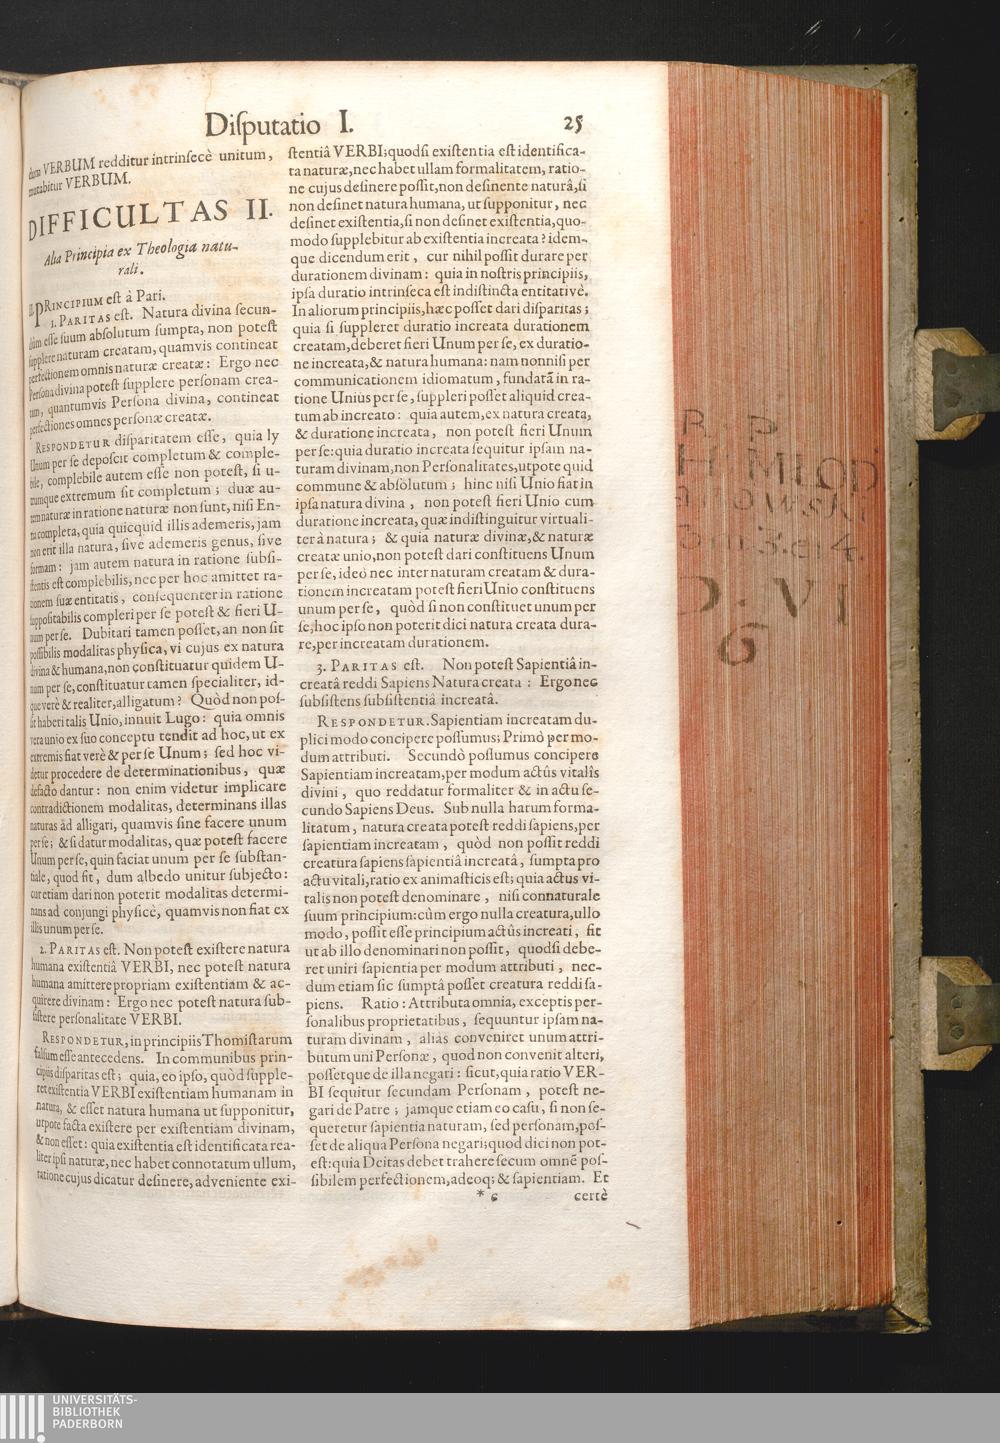 Disputatio I. 25
dum VERBUM redditur intrinsecè unitum,
mutabitur VERBUM.
DIFFICULTAS II.
Alia Principia ex Theologia natu-
rali.
PRINCIPIUM est à Pari.
1. PARITAS est. Natura divina secun-
dùm esse suum absolutum sumpta, non potest
supplere naturam creatam, quamvis contineat
perfectionem omnis naturæ creatæ: Ergo nec
Persona divina potest supplere personam crea-
tam, quantumvis Persona divina, contineat
perfectiones omnes personæ creatæ.
RESPONDETUR disparitatem esse, quia ly
Unum per se deposcit completum & comple-
bile, complebile autem esse non potest, si u-
trumque extremum sit completum; duæ au-
tem naturæ in ratione naturæ non sunt, nisi En-
tia completa, quia quicquid illis ademeris, jam
non erit illa natura, sive ademeris genus, sive
formam: jam autem natura in ratione subsi-
stentis est complebilis, nec per hoc amittet ra-
tionem suæ entitatis, consequenter in ratione
suppositabilis compleri per se potest & fieri U-
num per se. Dubitari tamen posset, an non sit
possibilis modalitas physica, vi cujus ex natura
divina & humana, non constituatur quidem U-
num per se, constituatur tamen specialiter, id-
que verè & realiter, alligatum? Quòd non pos-
sit haberi talis Unio, innuit Lugo: quia omnis
vera unio ex suo conceptu tendit ad hoc, ut ex
extremis fiat verè & per se Unum; sed hoc vi-
detur procedere de determinationibus, quæ
defacto dantur: non enim videtur implicare
contradictionem modalitas, determinans illas
naturas ad alligari, quamvis sine facere unum
per se; & si datur modalitas, quæ potest facere
Unum per se, quin faciat unum per se substan-
tiale, quod fit, dum albedo unitur subjecto:
cur etiam dari non poterit modalitas determi-
nans ad conjungi physicè, quamvis non fiat ex
illis unum per se.
2. PARITAS est. Non potest existere natura
humana existentiâ VERBI, nec potest natura
humana amittere propriam existentiam & ac-
quirere divinam: Ergo nec potest natura sub-
sistere personalitate VERBI.
RESPONDETUR, in principiis Thomistarum
falsum esse antecedens. In communibus prin-
cipiis disparitas est; quia, eo ipso, quòd supple-
ret existentia VERBI existentiam humanam in
natura, & esset natura humana ut supponitur,
utpote facta existere per existentiam divinam,
& non esset: quia existentia est identificata rea-
liter ipsi naturæ, nec habet connotatum ullum,
ratione cujus dicatur desinere, adveniente exi-
stentiâ VERBI; quodsi existentia est identifica-
ta naturæ, nec habet ullam formalitatem, ratio-
ne cujus desinere possit, non desinente naturâ, si
non desinet natura humana, ut supponitur, nec
desinet existentia, si non desinet existentia, quo-
modo supplebitur ab existentia increata? idem-
que dicendum erit, cur nihil possit durare per
durationem divinam: quia in nostris principiis,
ipsa duratio intrinseca est indistincta entitativè.
In aliorum principiis, hæc posset dari disparitas;
quia si suppleret duratio increata durationem
creatam, deberet fieri Unum per se, ex duratio-
ne increata, & natura humana: nam nonnisi per
communicationem idiomatum, fundatã in ra-
tione Unius per se, suppleri posset aliquid crea-
tum ab increato: quia autem, ex natura creata,
& duratione increata, non potest fieri Unum
per se: quia duratio increata sequitur ipsam na-
turam divinam, non Personalitates, utpote quid
commune & absolutum; hinc nisi Unio fiat in
ipsa natura divina, non potest fieri Unio cum
duratione increata, quæ indistinguitur virtuali-
ter à natura; & quia naturæ divinæ, & naturæ
creatæ unio, non potest dari constituens Unum
per se, ideò nec inter naturam creatam & dura-
tionem increatam potest fieri Unio constituens
unum per se, quòd si non constituet unum per
se, hoc ipso non poterit dici natura creata dura-
re, per increatam durationem.
3. PARITAS est. Non potest Sapientiâ in-
creatâ reddi Sapiens Natura creata: Ergo nec
subsistens subsistentiâ increatâ.
RESPONDETUR. Sapientiam increatam du-
plici modo concipere possumus; Primò per mo-
dum attributi. Secundò possumus concipere
Sapientiam increatam, per modum actûs vitalis
divini, quo reddatur formaliter & in actu se-
cundo Sapiens Deus. Sub nulla harum forma-
litatum, natura creata potest reddi sapiens, per
sapientiam increatam, quòd non possit reddi
creatura sapiens sapientiâ increatâ, sumpta pro
actu vitali, ratio ex animasticis est; quia actus vi-
talis non potest denominare, nisi connaturale
suum principium: cùm ergo nulla creatura, ullo
modo, possit esse principium actûs increati, fit
ut ab illo denominari non possit, quodsi debe-
ret uniri sapientia per modum attributi, nec-
dum etiam sic sumptâ posset creatura reddi sa-
piens. Ratio: Attributa omnia, exceptis per-
sonalibus proprietatibus, sequuntur ipsam na-
turam divinam, aliàs conveniret unum attri-
butum uni Personæ, quod non convenit alteri,
possetque de illa negari: sicut, quia ratio VER-
BI sequitur secundam Personam, potest ne-
gari de Patre; jamque etiam eo casu, si non se-
queretur sapientia naturam, sed personam, pos-
set de aliqua Persona negari; quod dici non pot-
est: quia Deitas debet trahere secum omnē pos-
sibilem perfectionem, adeoq; & sapientiam. Et
* c certè
R. P.
MŁOD
OWSKI
3. e 4.
VI
6
UNIVERSITÄTS-
BIBLIOTHEK
PADERBORN